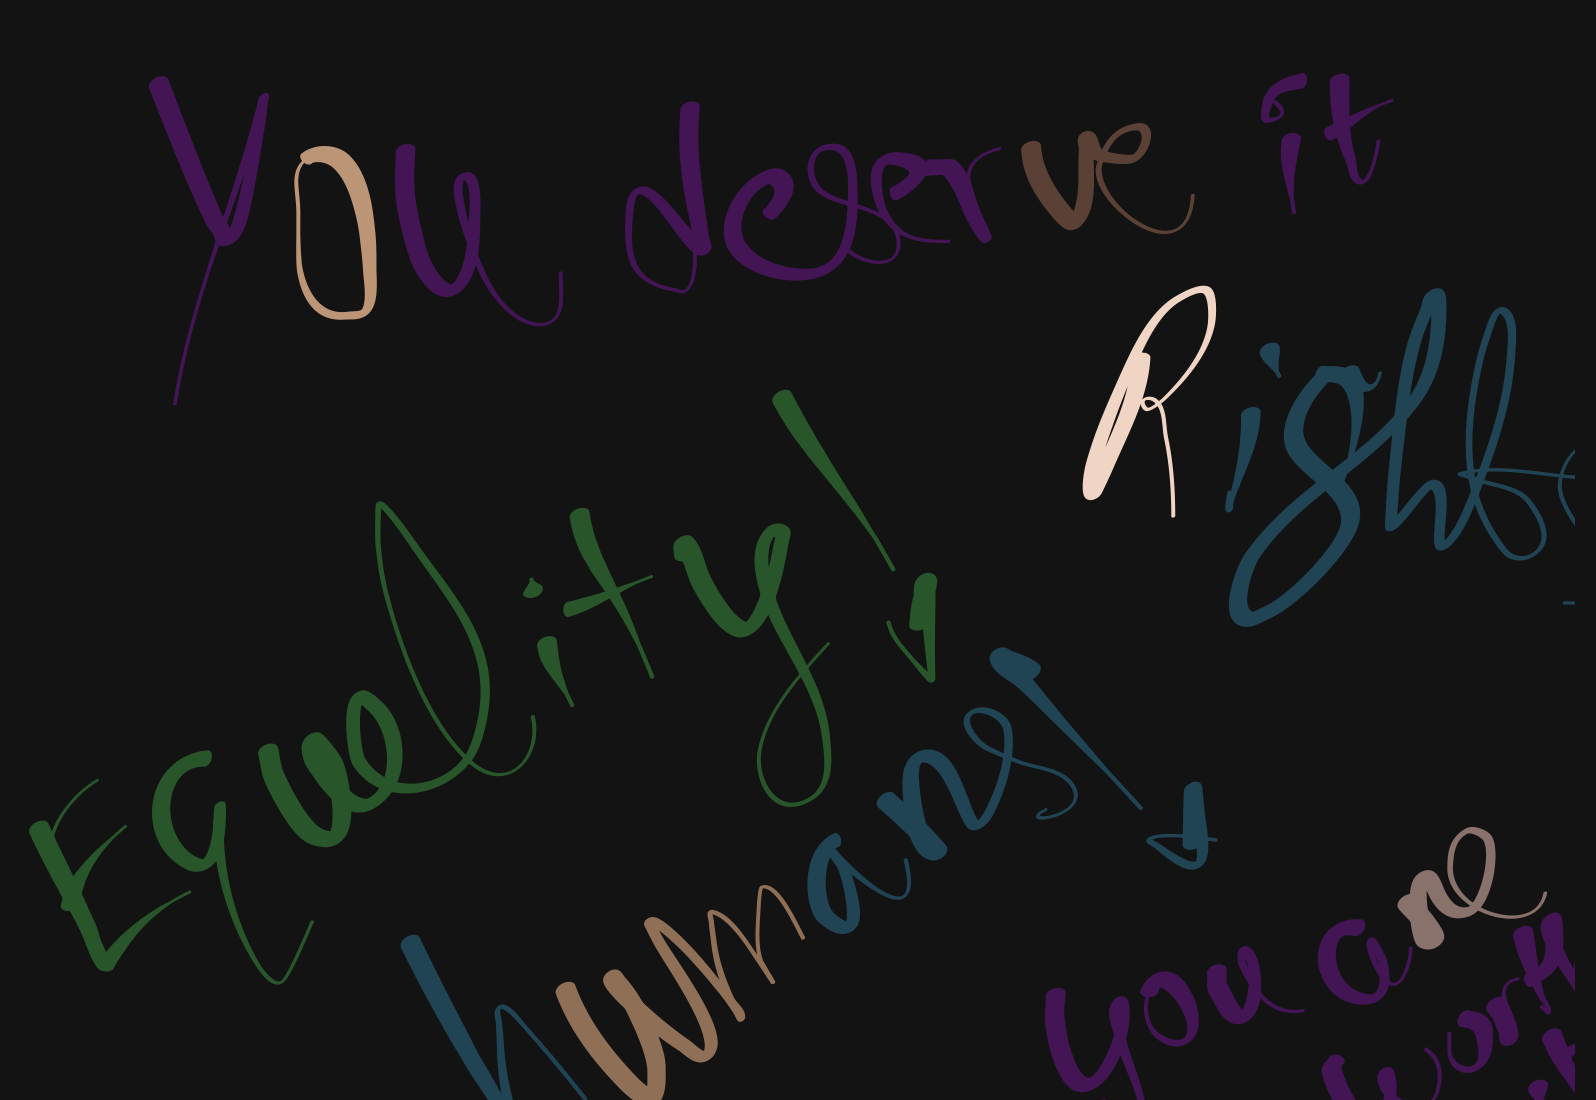 You deserve it
Right
Equality!
humans!
you are
worth
it